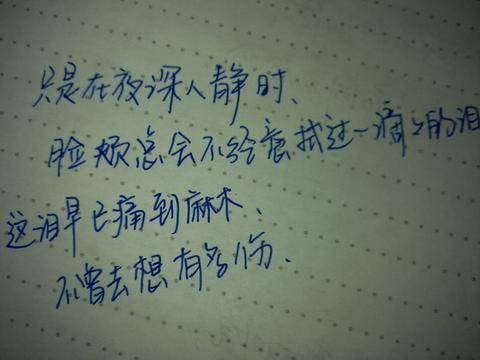 只是在夜深人静时、
脸颊总会不经意拭过一滴々的泪
这泪早已痛到麻木、
不曾去想有多伤、